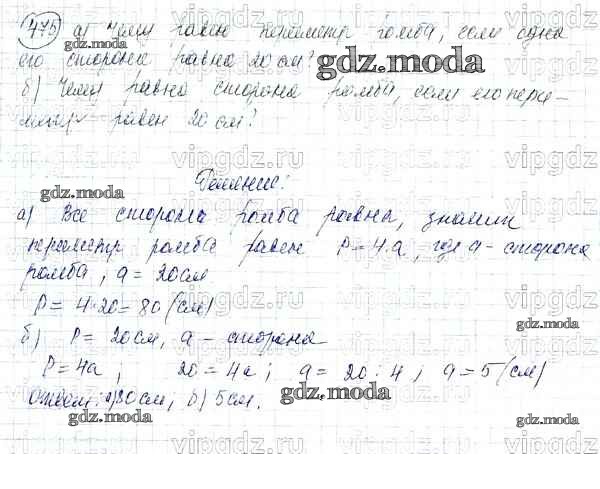 475 а) Чему равен периметр ромба, если одна
его сторона равна 20 см?
б) Чему равна сторона ромба, если его пери-
метр равен 20 см?
Решение:
а) Все стороны ромба равны, значит
периметр ромба равен P = 4·a, где a - сторона
ромба, a = 20см
P = 4·20 = 80 (см)
б) P = 20см, a - сторона
P = 4a; 20 = 4a; a = 20 : 4; a = 5 (см)
Ответ: а) 80см, б) 5см.
gdz.moda
gdz.moda
gdz.moda
gdz.moda
gdz.moda
gdz.moda
gdz.moda
vipgdz.ru